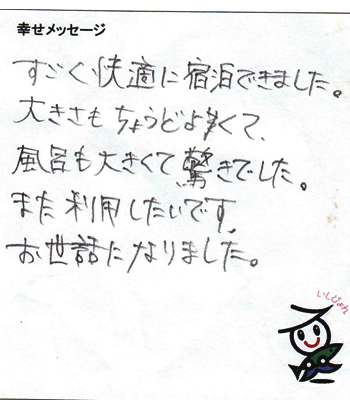 幸せメッセージ
すごく快適に宿泊できました。
大きさもちょうどよくて、
風呂も大きくて驚きでした。
また利用したいです。
お世話になりました。